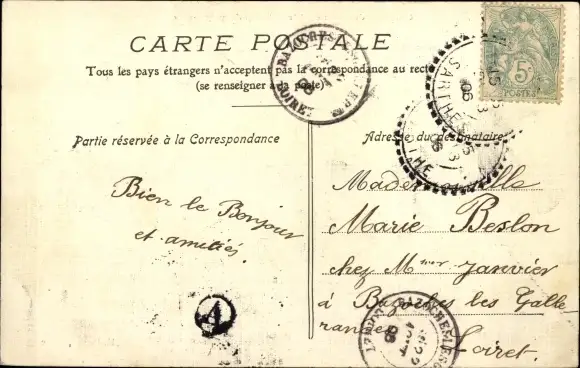 CARTE POSTALE
Tous les pays étrangers n'acceptent pas la correspondance au recto
(se renseigner à la poste)
Partie réservée à la Correspondance
Adresse du destinataire
Bien le Bonjour
et amitiés.
Mademoiselle
Marie Beslon
chez Mme Janvier
à Bazoches les Galle
randes
Loiret.
5c
POSTES
SARTHE
LOIRET
A